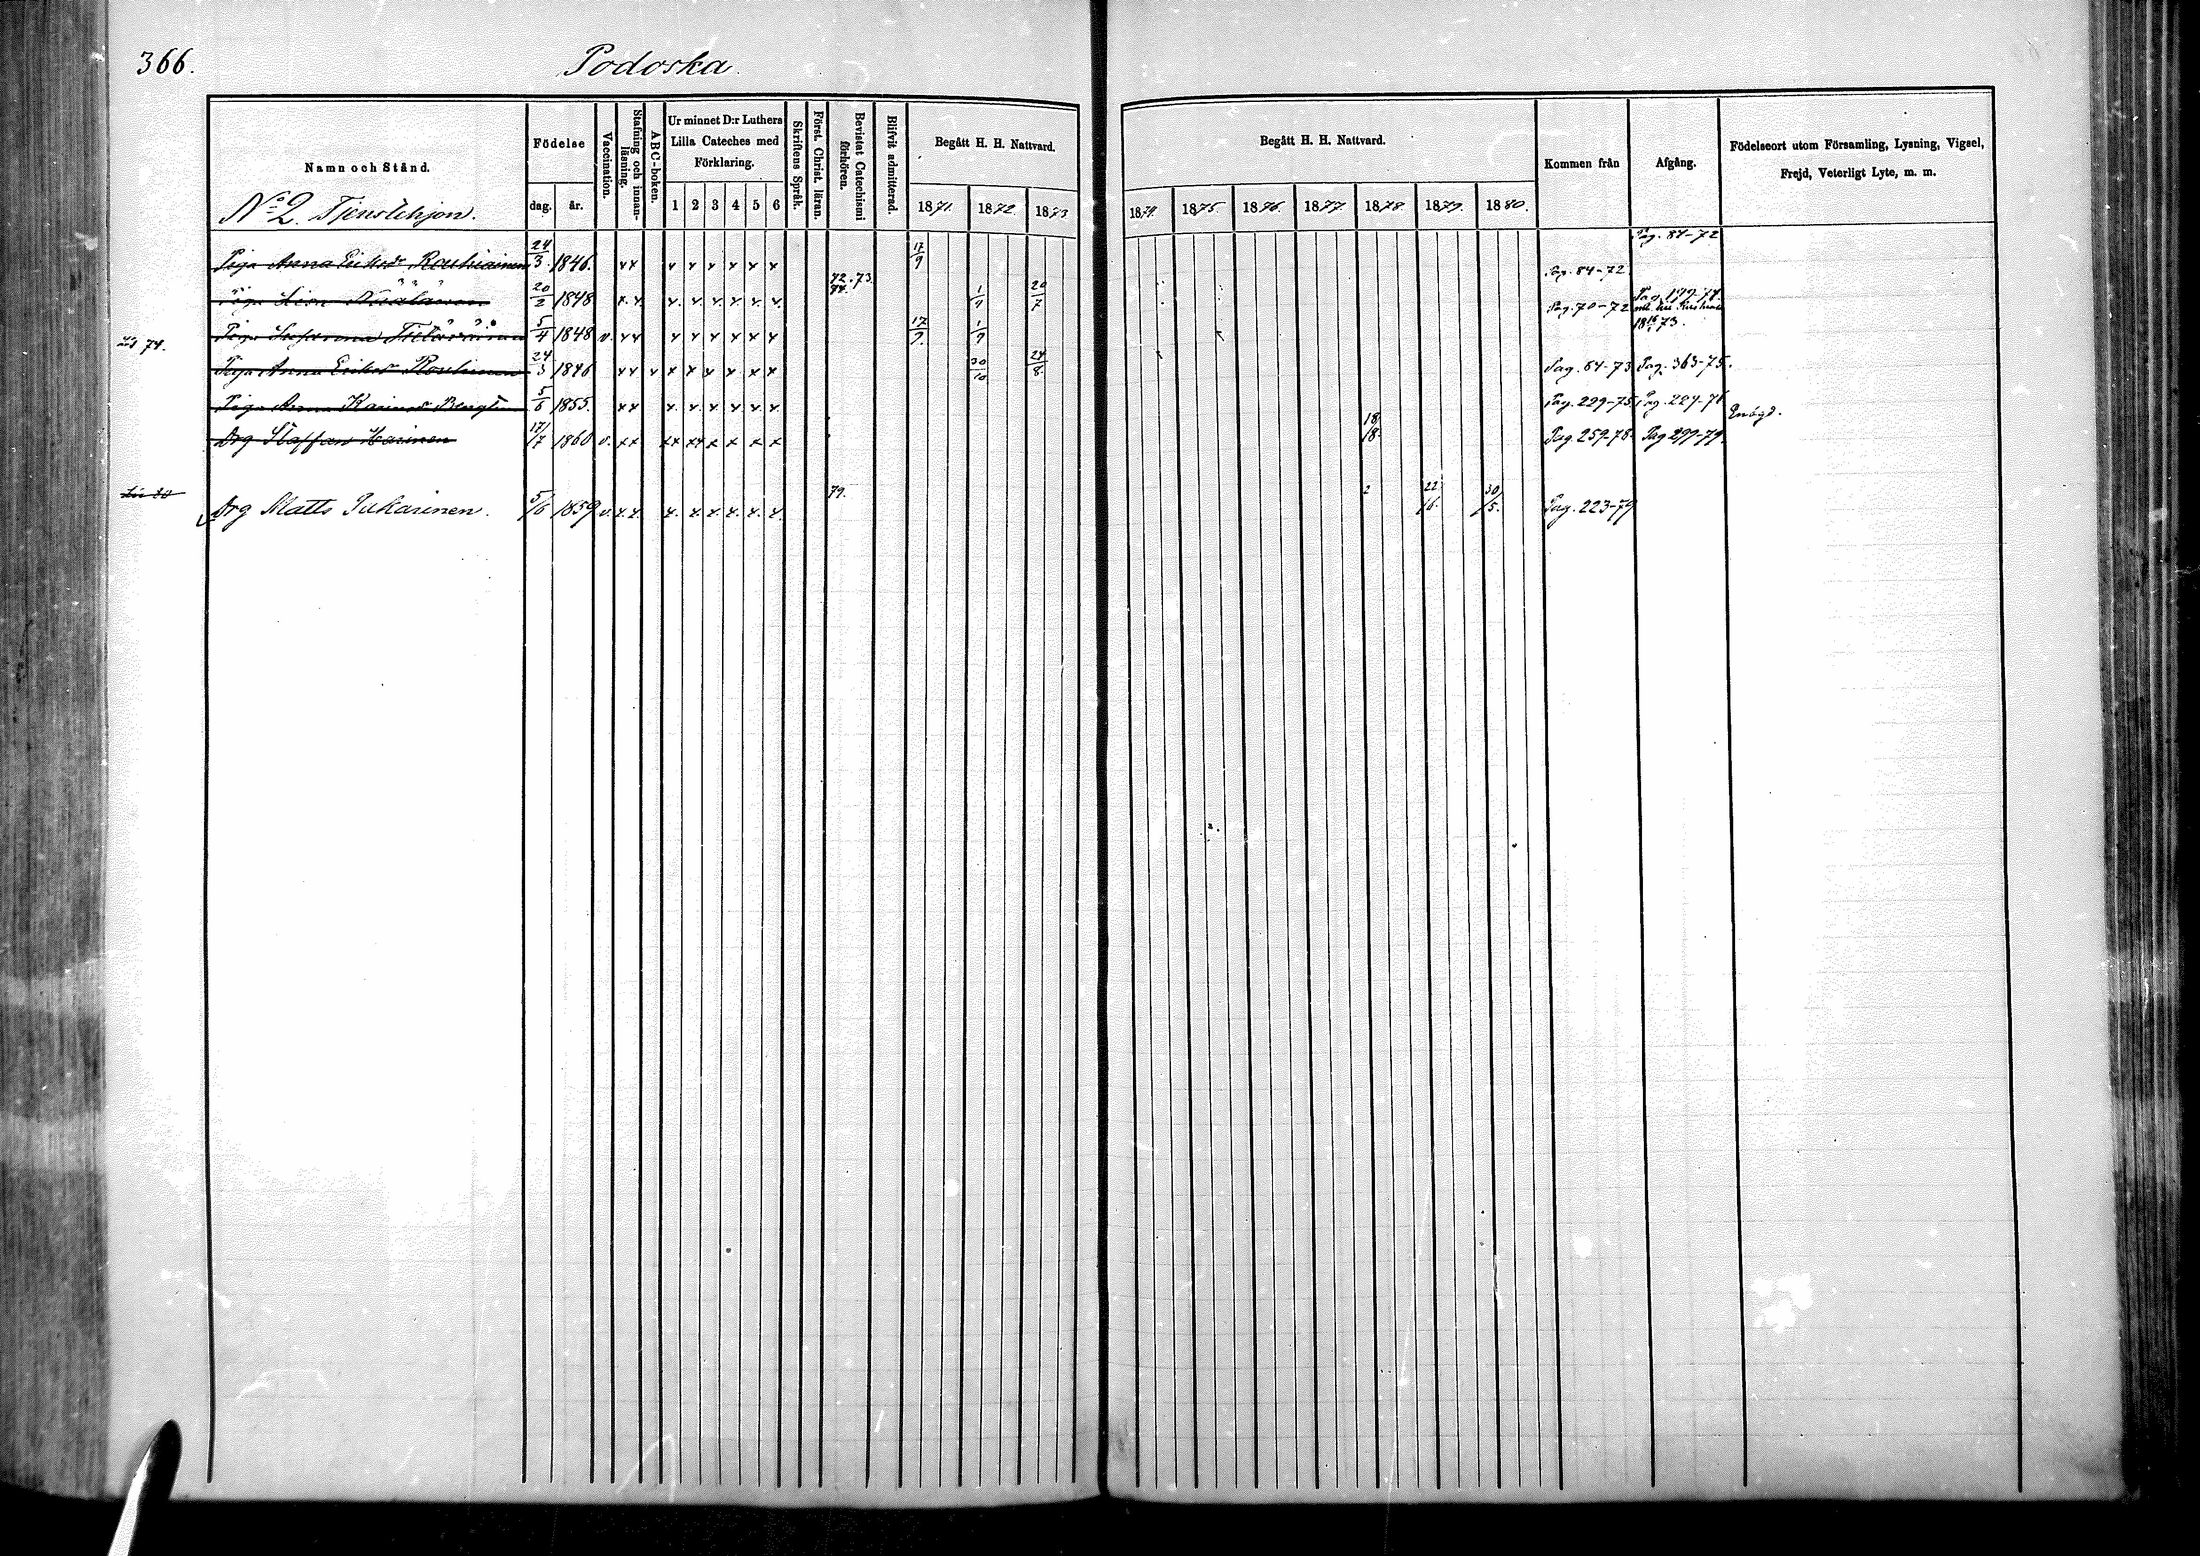 366.
Podoska.
Namn och Stånd.
Födelse
dag. år.
Vaccination.
Stafning och innanläsning.
ABC-boken.
Ur minnet D:r Luthers Lilla Cateches med Förklaring.
1 2 3 4 5 6
Skriftens Språk.
Först. Christ. läran.
Bevistat Catechismi förhören.
Blifvit admitterad.
Begått H. H. Nattvard.
1871. 1872. 1873
Begått H. H. Nattvard.
1874. 1875. 1876. 1877. 1878. 1879. 1880.
Kommen från
Afgång.
Födelseort utom Församling, Lysning, Vigsel, Frejd, Veterligt Lyte, m. m.
No 2. Tjenstehjon.
Piga Anna Eriksdr 24/3 1846. x x x x x x x x 17/9 Pag. 84-72
Piga 20/2 1848 x x x x x x x x 72.73. 74. 1/9 20/7 Pag. 84-72
Piga Susanna 5/4 1848 v. x x x x x x x x 17/9. 1/9 Pag. 70-72 18 73.
Piga Anna Eriksdr 24/3 1846 x x v x x x x x x 30/10 24/8 Pag. 64-73 Pag. 363-75.
Piga Anna 5/6 1855. x x x x x x x x Pag. 229-75
Drg Staffan Harinen 17/7 1860 v. x x x x x x x x x x 18/8. Pag. 259-78. Pag 299-79.
Drg Matts Jukarinen. 5/6 1859 v. x x. x. x. x. x. x. x. 79. 2 22/6. 30/5. Pag. 223-79